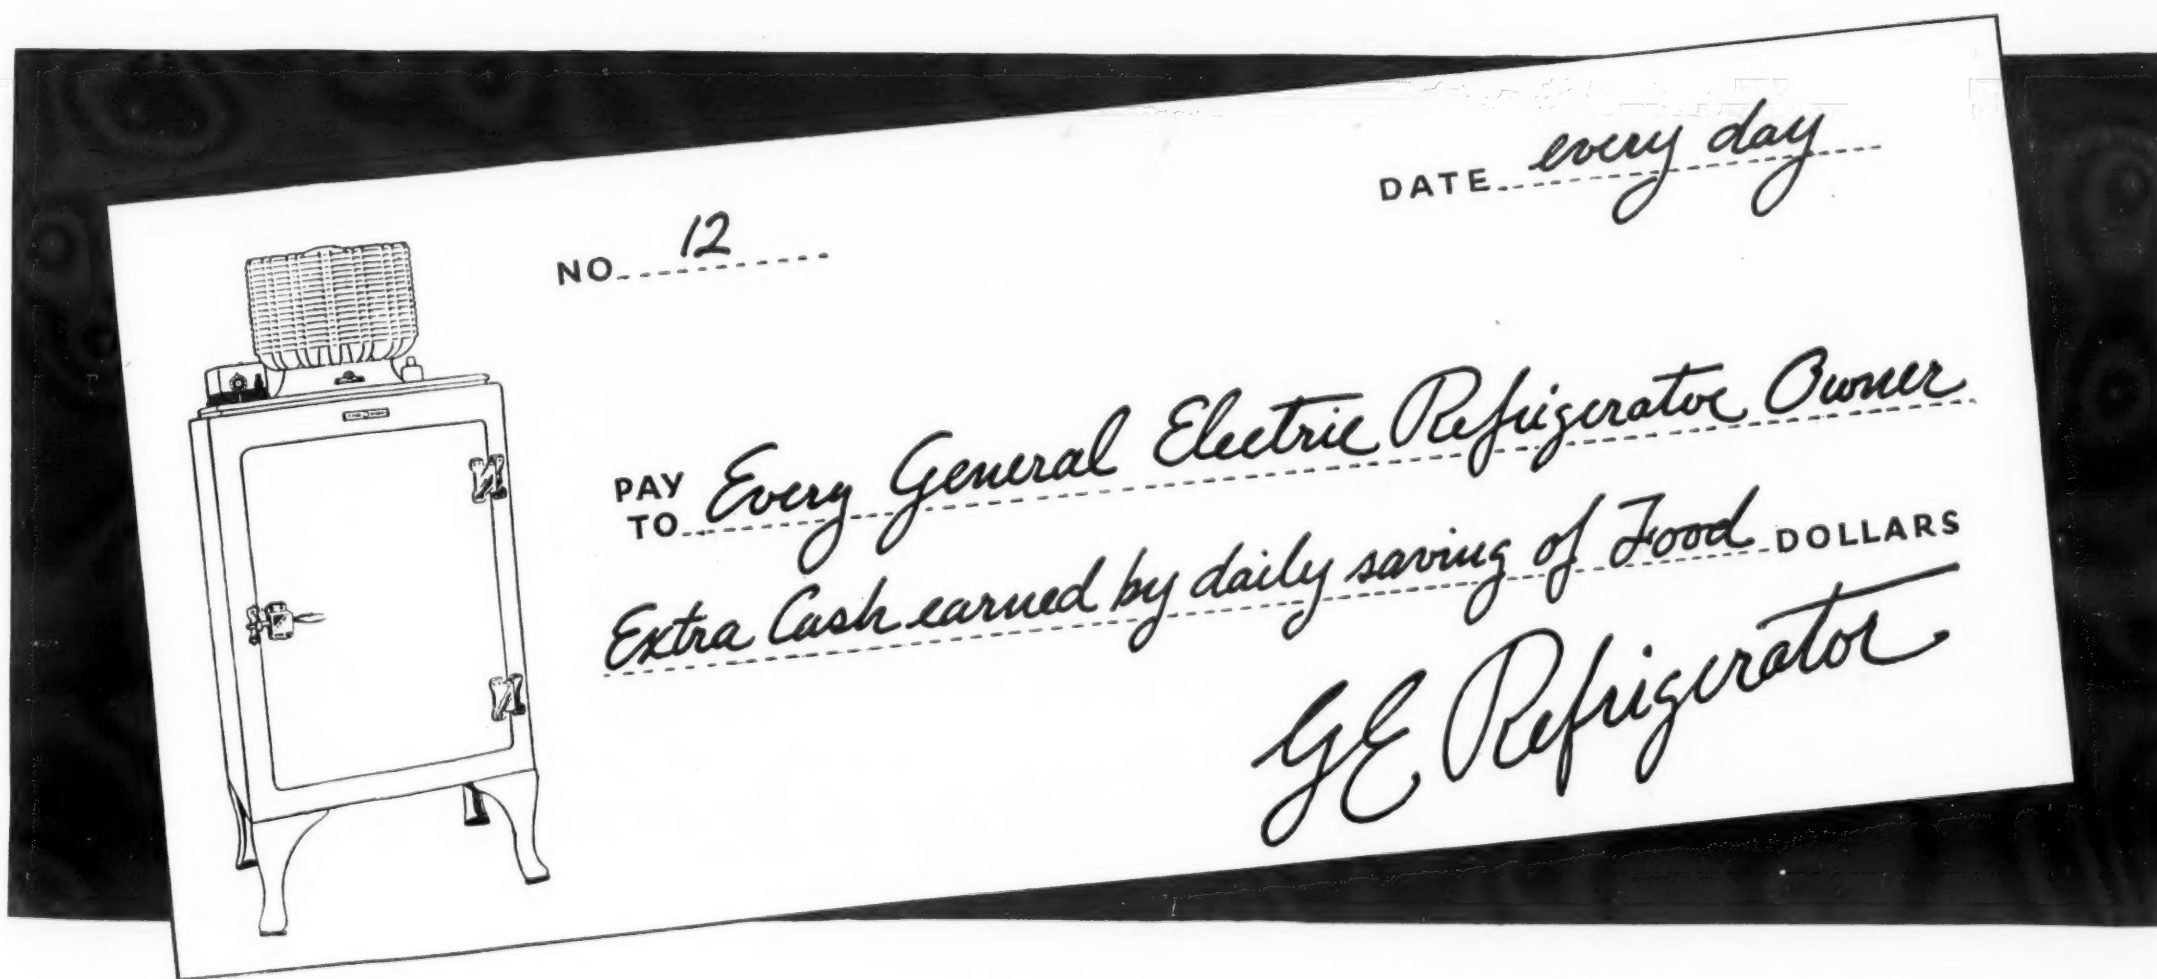 NO. 12
DATE every day
PAY TO Every General Electric Refrigerator Owner
Extra Cash earned by daily saving of Food DOLLARS
GE Refrigerator